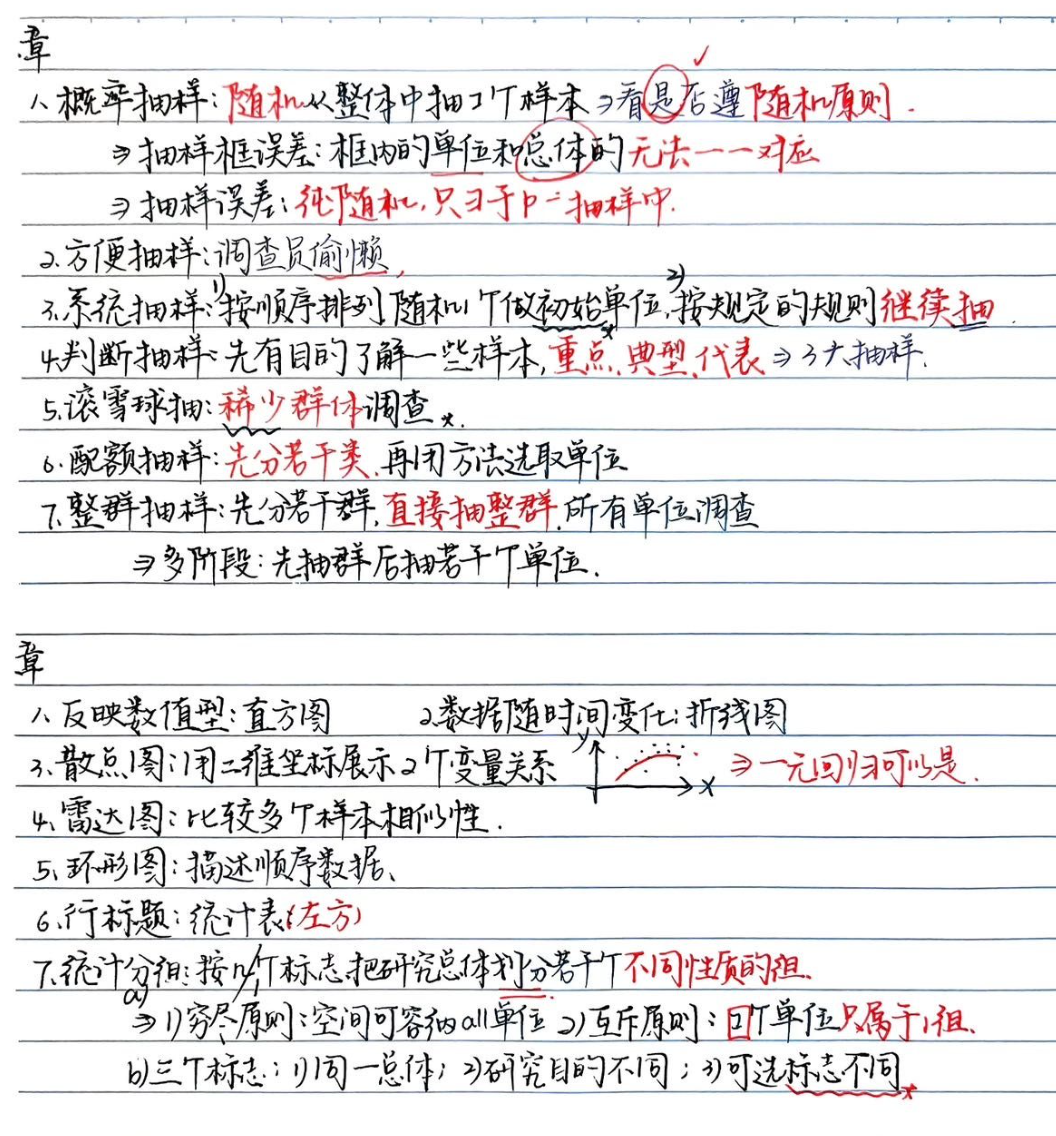 章
1、概率抽样:随机从整体中抽1个样本⇒看是否遵随机原则.
⇒抽样框误差:框内的单位和总体的无法一一对应
⇒抽样误差:纯随机,只于P=抽样中.
2.方便抽样:调查员偷懒
3.系统抽样:1)按顺序排列随机1个做初始单位,2)按规定的规则继续抽.
4.判断抽样:先有目的了解一些样本,重点、典型、代表⇒3大抽样.
5.滚雪球抽:稀少群体调查.
6.配额抽样:先分若干类,再用方法选取单位
7.整群抽样:先分若干群,直接抽整群,所有单位调查
⇒多阶段:先抽群后抽若干个单位.
章
1、反映数值型:直方图 2.数据随时间变化:折线图
3.散点图:用二维坐标展示2个变量关系 y x ⇒一元回归可以是.
4、雷达图:比较多个样本相似性.
5、环形图:描述顺序数据、
6、行标题:统计表(左方)
7.统计分组:按n个标志把研究总体划分若干个不同性质的组.
a)⇒1)穷尽原则:空间可容纳all单位 2)互斥原则:1个单位只属于1组.
b)三个标志:1)同一总体;2)研究目的不同;3)可选标志不同